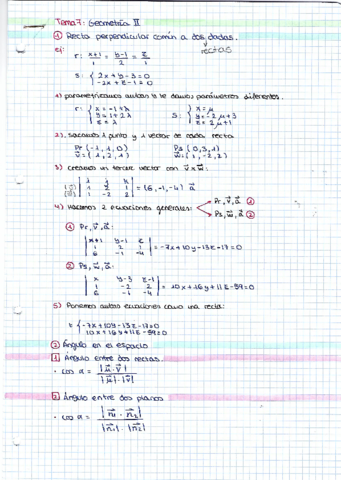 Tema 7: Geometría II
① Recta perpendicular común a dos dadas.
rectas
ej:
r: x+1/1 = y-1/2 = z/1
s: { 2x+y-3=0
-2x+z-1=0
1) parametrizamos ambas y le damos parámetros diferentes.
r: { x=-1+λ
y=1+2λ
z=λ
s: { x=μ
y=-2μ+3
z=2μ+1
2) sacamos 1 punto y 1 vector de cada recta
Pr (-1, 1, 0)
v=(1, 2, 1)
Ps (0,3,1)
w=(1,-2,2)
3) creamos un tercer vector con v×w:
1 2 1
1 -2 2
= (6,-1,-4) a
4) Hacemos 2 ecuaciones generales:
Pr, v, a ①
Ps, w, a ②
① Pr, v, a:
| x+1 y-1 z |
| 1 2 1 |
| 6 -1 -4 | = -7x+10y-13z-17=0
② Ps, w, a:
| x y-3 z-1 |
| 1 -2 2 |
| 6 -1 -4 | = 10x+16y+11z-59=0
5) Ponemos ambas ecuaciones como una recta:
t { -7x+10y-13z-17=0
10x+16y+11z-59=0
② Ángulo en el espacio
1 Ángulo entre dos rectas.
· cos α = |u·v| / |u|·|v|
2 Ángulo entre dos planos
· cos α = |n₁·n₂| / |n₁|·|n₂|